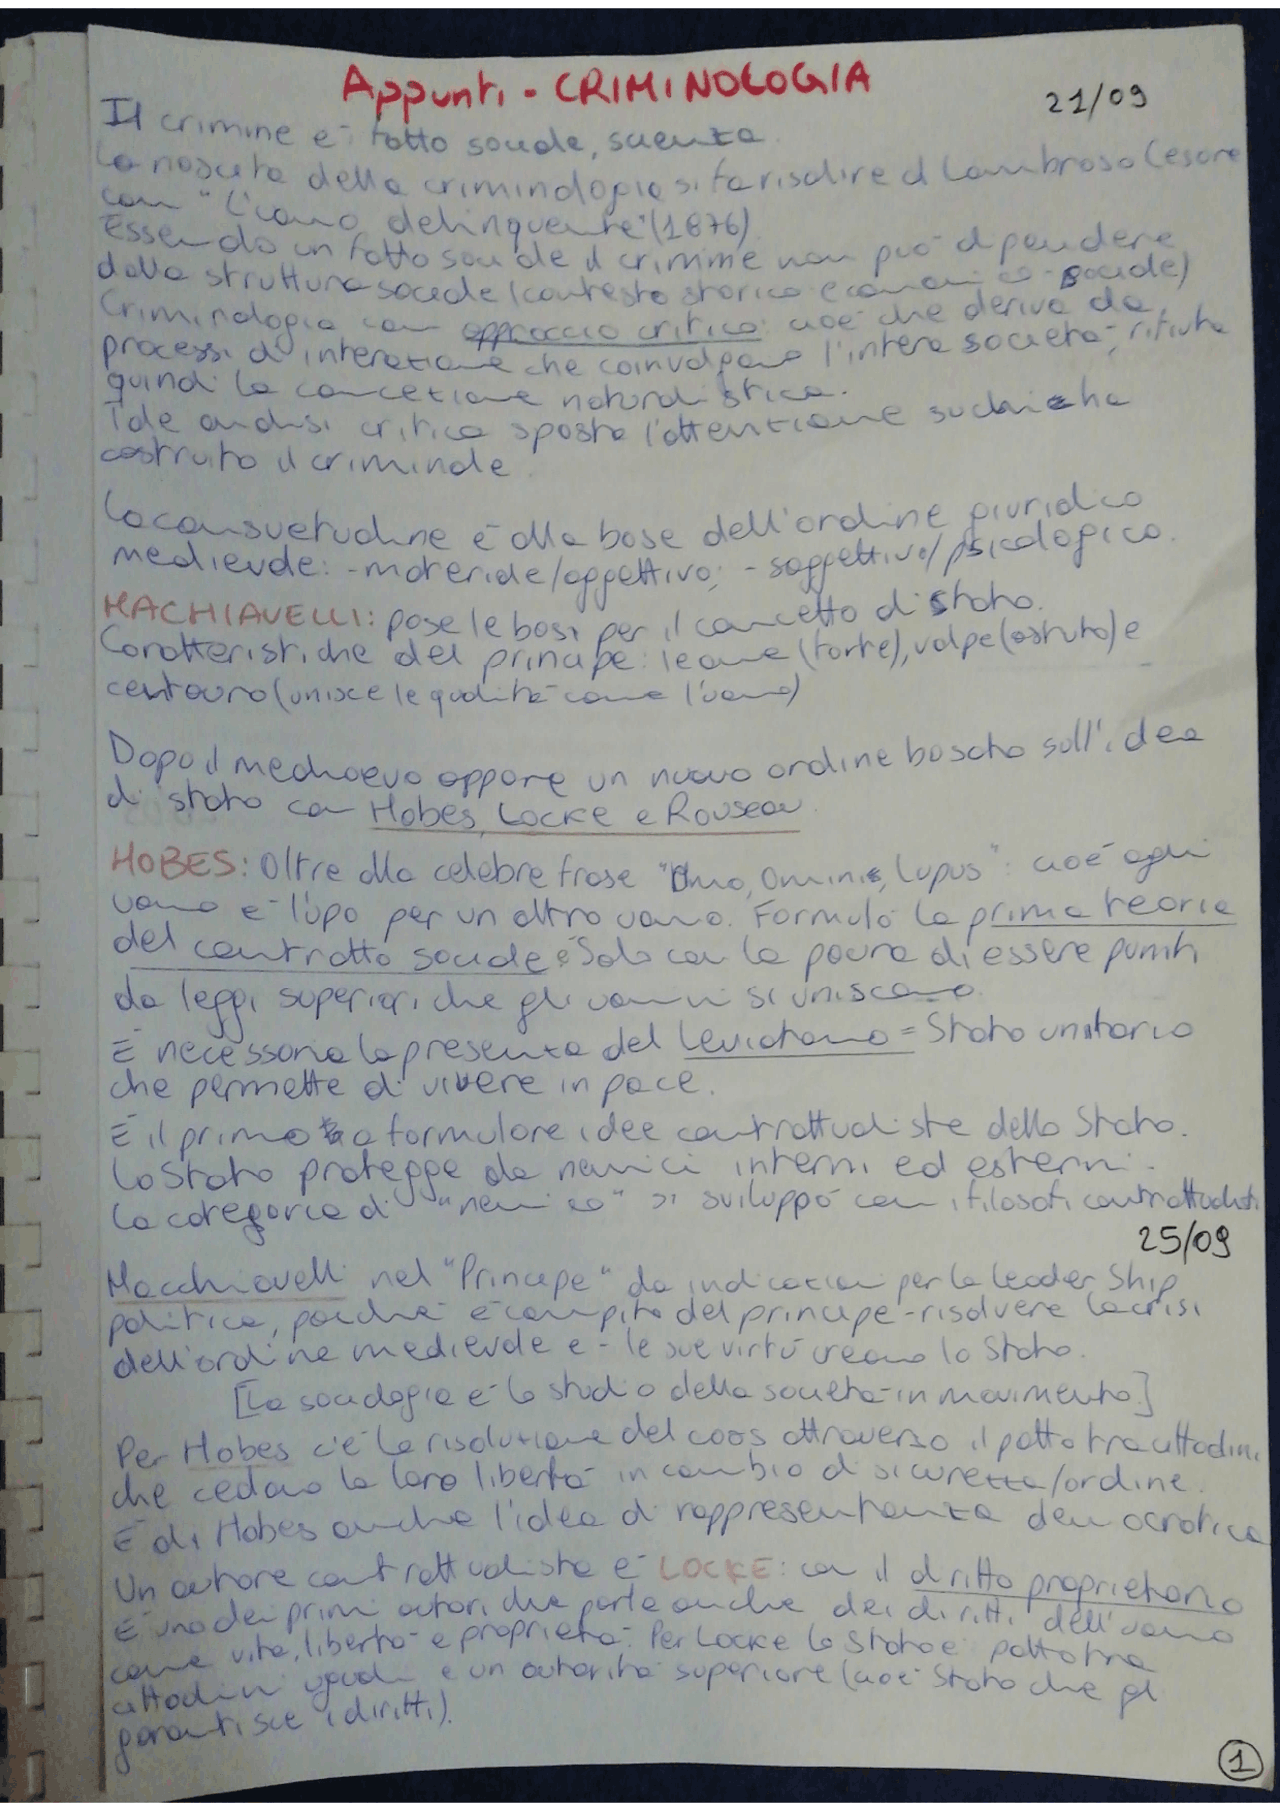 Appunti - CRIMINOLOGIA
21/09
Il crimine è fatto sociale, scienza.
La nascita della criminologia si fa risalire al Lombroso Cesare
con "L'uomo delinquente" (1876)
Essendo un fatto sociale il crimine non può dipendere
dalla struttura sociale (contesto storico economico - sociale)
Criminologia con approccio critico: cioè che deriva da
processi di interazione che coinvolgono l'intera società, rifiuta
quindi la concezione naturalistica.
Tale analisi critica sposta l'attenzione su chi ha
costruito il criminale.
La consuetudine è alla base dell'ordine giuridico
medievale: - materiale/oggettivo; - soggettivo/psicologico.
MACHIAVELLI: pose le basi per il concetto di stato.
Caratteristiche del principe: leone (forte), volpe (astuto) e
centauro (unisce le qualità come l'uomo)
Dopo il medioevo appare un nuovo ordine basato sull'idea
di stato con Hobes, Locke e Rouseau.
HOBES: Oltre alla celebre frase "Omo, Ominis, Lupus": cioè ogni
uomo è lupo per un altro uomo. Formulò la prima teoria
del contratto sociale è Solo con la paura di essere puniti
da leggi superiori che gli uomini si uniscono.
È necessaria la presenza del Leviatano = Stato unitario
che permette di vivere in pace.
È il primo a formulare idee contrattualiste dello Stato.
Lo Stato protegge da nemici interni ed esterni.
La categoria di "nemico" si sviluppò con i filosofi contrattualisti
25/09
Macchiavelli nel "Principe" da indicazioni per la leader ship
politica, poichè è compito del principe - risolvere la crisi
dell'ordine medievale e - le sue virtù creano lo Stato.
[La sociologia è lo studio della società in movimento.]
Per Hobes c'è la risoluzione del caos attraverso il patto tra cittadini
che cedono la loro libertà in cambio di sicurezza/ordine.
È di Hobes anche l'idea di rappresentanza democratica
Un autore contrattualista è LOCKE: con il diritto proprietario
È uno dei primi autori che parla anche dei diritti dell'uomo
come vita, libertà e proprietà. Per Locke lo Stato è patto tra
cittadini uguali e un autorità superiore (cioè Stato che gl
garantisce i diritti).
1